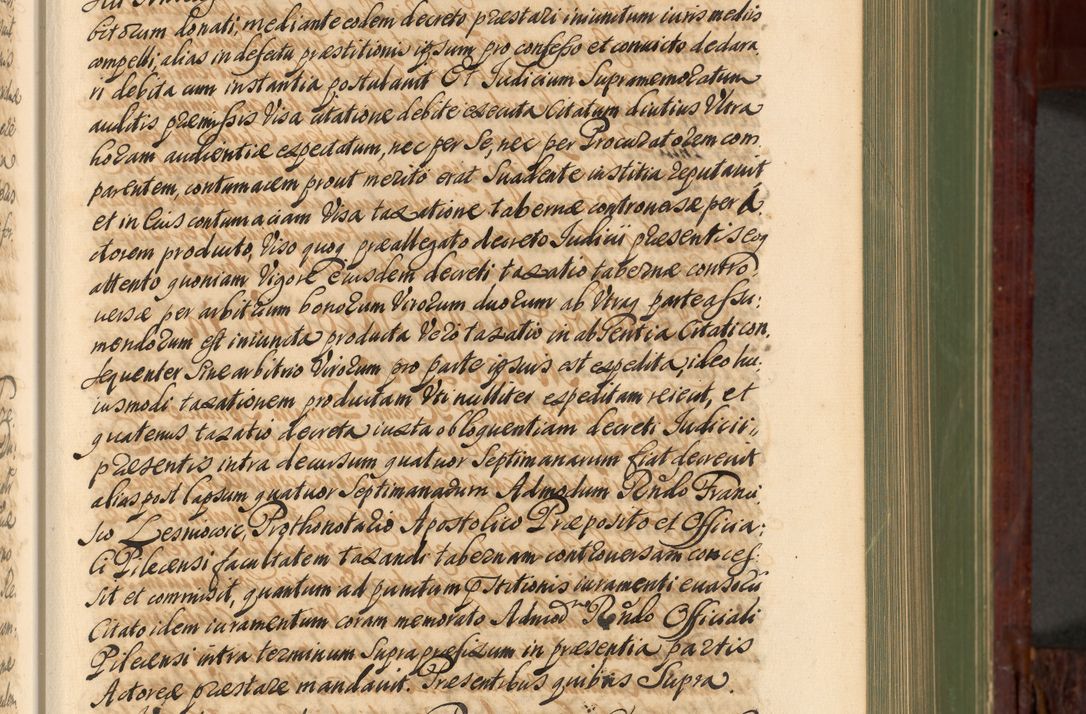 bitorum donati, mediante eodem decreto præstari iniunctum iuris mediis
compelli, alias in defectu præstitionis ipsum pro confesso et convicto declara
ri debita cum instantia postulavit Et Judicium Supramemoratum
auditis præmissis Visa citatione debite executa Citatum diutius Ultra
horam audientiæ expectatum, nec per Se, nec per Procuratorem com,
parentem, contumacem prout merito erat Suadente iustitia reputavit
et in Eius contumaciam Visa taxatione tabernæ controversæ per A,
ctorem producto, Viso quoq præallegato decreto Judicii præsentis eoq
attento quoniam Vigore Eiusdem decreti taxatio tabernæ contro,
versæ per arbitrium bonorum Virorum duorum ab Utraq parte assu:
mendorum est iniuncta producta Vero taxatio in absentia Citati con,
sequenter Sine arbitrio Virorum pro parte ipsius est expedita, ideo hu:
iusmodi taxationem productam Uti nulliter expeditam reiecit, et
quatenus taxatio decreta iuxta obloquentiam decreti Judicii,
præsentis intra decursum quatuor Septimanarum fiat decrevit
alias post lapsum quatuor Septimanarum Admodum Rndo Franci,
sco Lesniowic, Prothonotario Apostolico Præposito et Officia:
li Pilecensi facultatem taxandi tabernam controversam conces:
sit et commisit, quantum ad punctum pstitionis iuramenti
Citato idem iuramentum coram memorato Admod Rndo Officiali
Pilecensi intra terminum Supra præfixum in præsentia partis
Actoreæ præstare mandavit. Præsentibus quibus Supra.